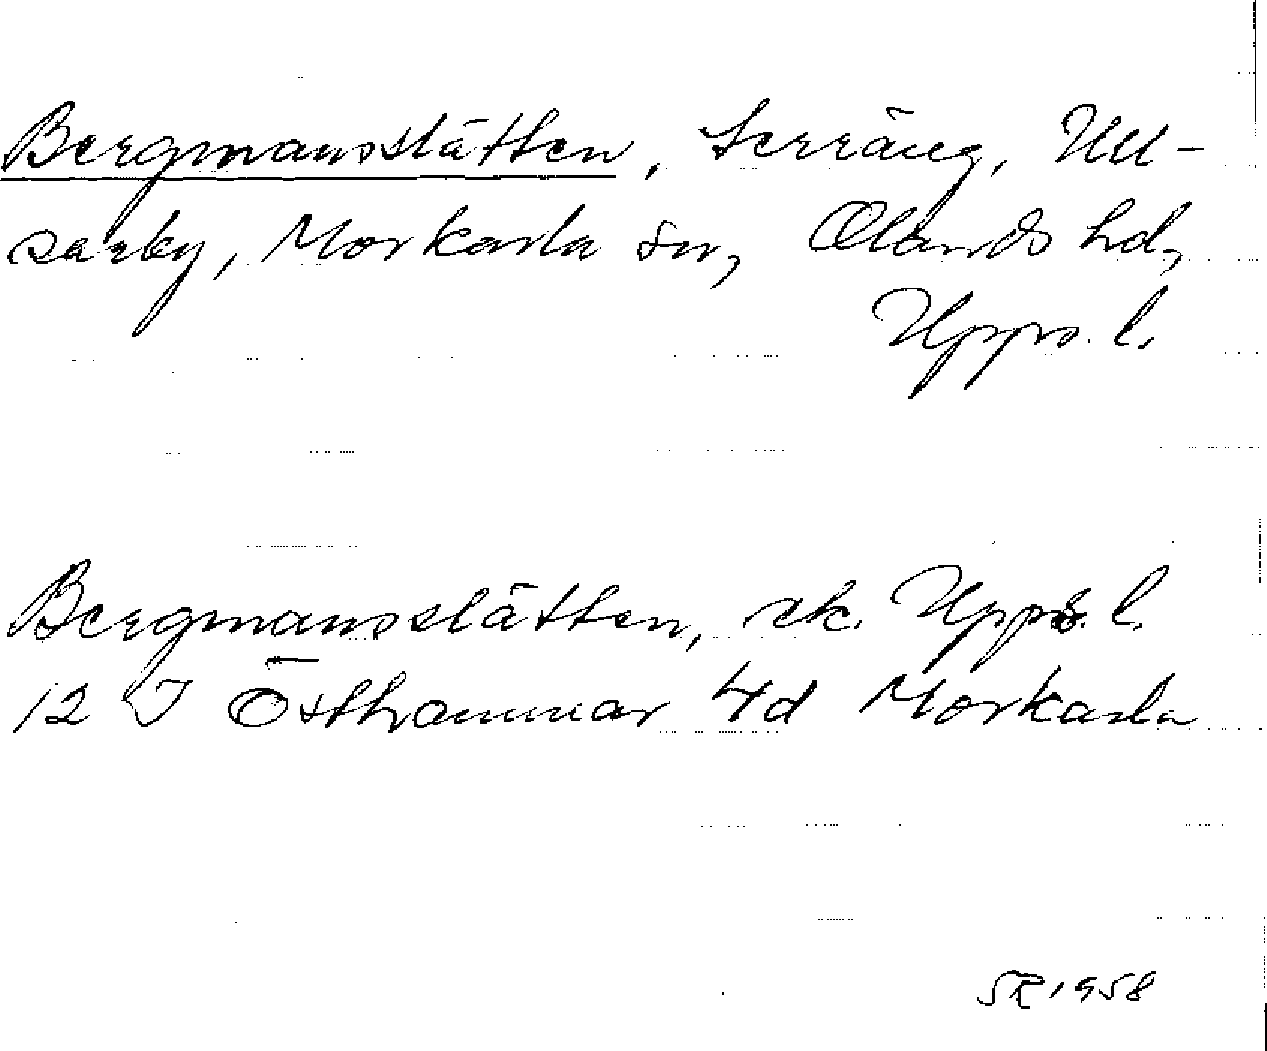 Bergmansslätten, terräng, Ull-
sarby, Morkarla sn, Olands hd,
Upps. l.
Bergmansslätten, ek. Upps. l.
12 I Östhammar 4d Morkarla
SR 1958